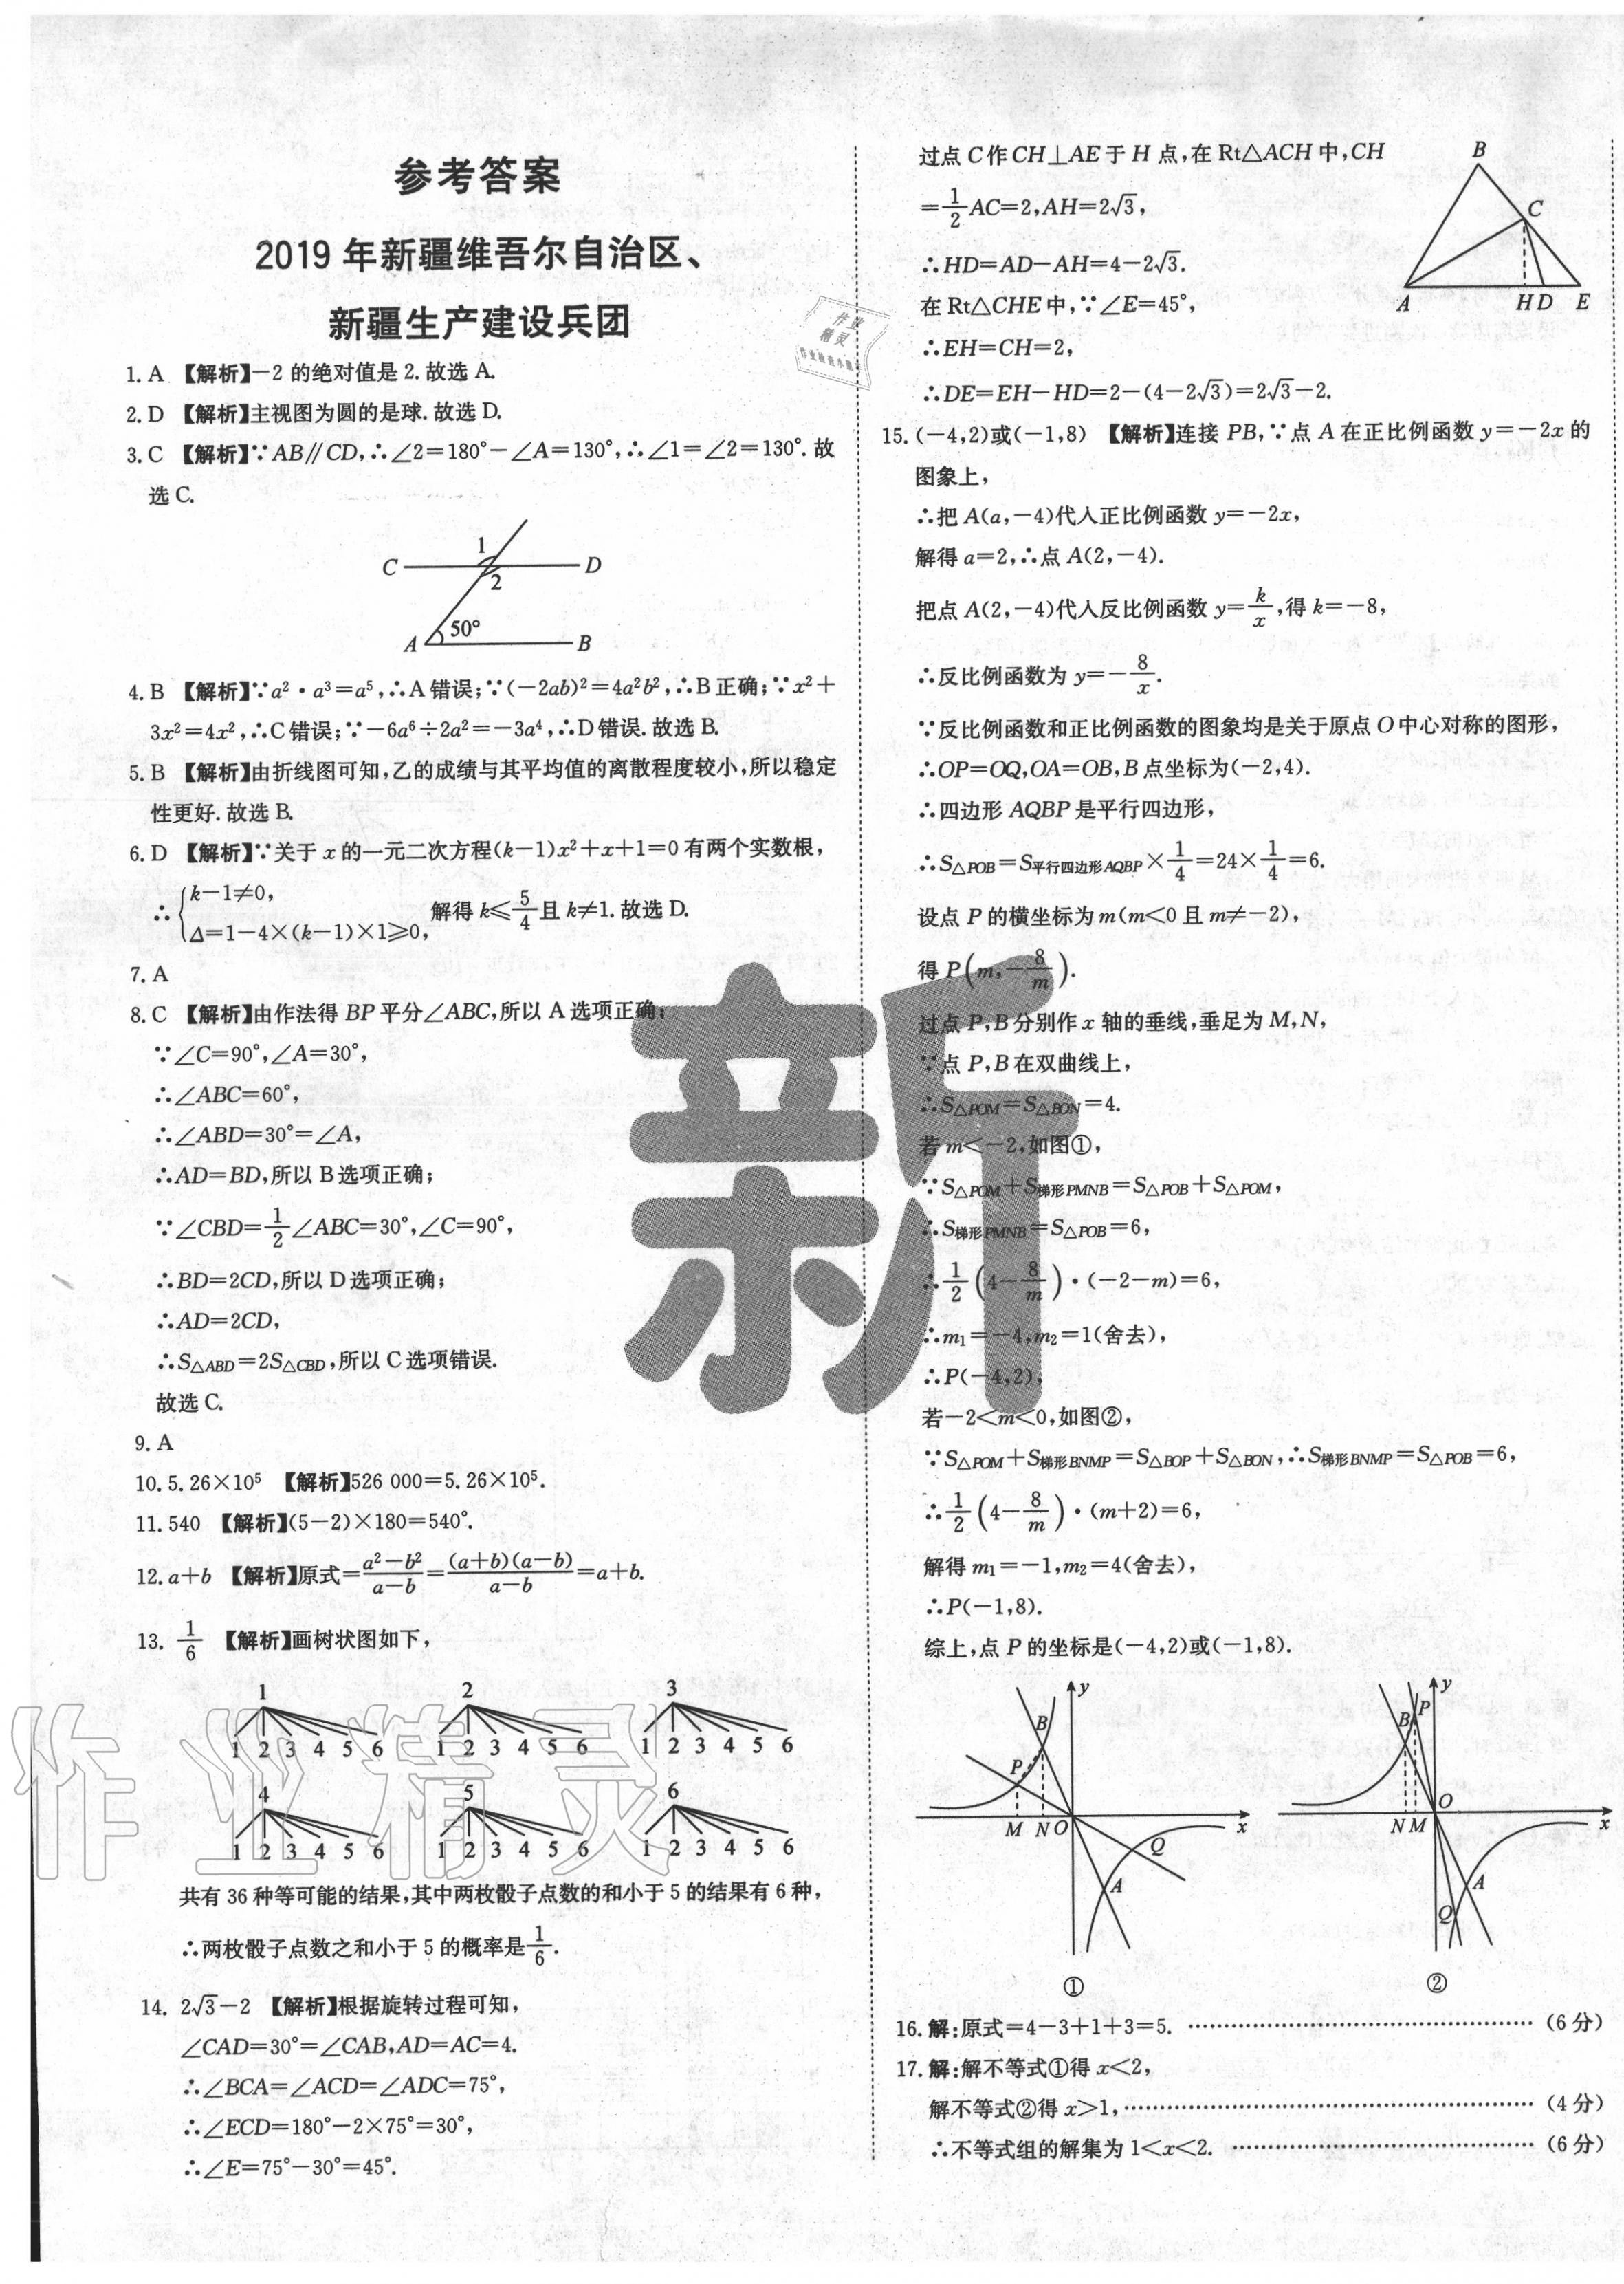 参考答案
2019 年新疆维吾尔自治区、
新疆生产建设兵团
1. A 【解析】-2 的绝对值是 2. 故选 A.
2. D 【解析】主视图为圆的是球. 故选 D.
3. C 【解析】∵AB∥CD,∴∠2=180°-∠A=130°,∴∠1=∠2=130°. 故
选 C.
1
C
D
2
50°
A
B
4. B 【解析】∵a²·a³=a⁵,∴A 错误;∵(-2ab)²=4a²b²,∴B 正确;∵x²+
3x²=4x²,∴C 错误;∵-6a⁶÷2a²=-3a⁴,∴D 错误. 故选 B.
5. B 【解析】由折线图可知,乙的成绩与其平均值的离散程度较小,所以稳定
性更好. 故选 B.
6. D 【解析】∵关于 x 的一元二次方程(k-1)x²+x+1=0 有两个实数根,
∴{k-1≠0, Δ=1-4×(k-1)×1≥0, 解得 k≤5/4 且 k≠1. 故选 D.
7. A
8. C 【解析】由作法得 BP 平分∠ABC,所以 A 选项正确;
∵∠C=90°,∠A=30°,
∴∠ABC=60°,
∴∠ABD=30°=∠A,
∴AD=BD,所以 B 选项正确;
∵∠CBD=1/2∠ABC=30°,∠C=90°,
∴BD=2CD,所以 D 选项正确;
∴AD=2CD,
∴S△ABD=2S△CBD,所以 C 选项错误.
故选 C.
9. A
10. 5.26×10⁵ 【解析】526 000=5.26×10⁵.
11. 540 【解析】(5-2)×180=540°.
12. a+b 【解析】原式=(a²-b²)/(a-b)=(a+b)(a-b)/(a-b)=a+b.
13. 1/6 【解析】画树状图如下,
1 2 3
1 2 3 4 5 6 1 2 3 4 5 6 1 2 3 4 5 6
4 5 6
1 2 3 4 5 6 1 2 3 4 5 6 1 2 3 4 5 6
共有 36 种等可能的结果,其中两枚骰子点数的和小于 5 的结果有 6 种,
∴两枚骰子点数之和小于 5 的概率是1/6.
14. 2√3-2 【解析】根据旋转过程可知,
∠CAD=30°=∠CAB,AD=AC=4.
∴∠BCA=∠ACD=∠ADC=75°,
∴∠ECD=180°-2×75°=30°,
∴∠E=75°-30°=45°.
过点 C 作 CH⊥AE 于 H 点,在 Rt△ACH 中,CH
=1/2AC=2,AH=2√3,
∴HD=AD-AH=4-2√3.
在 Rt△CHE 中,∵∠E=45°,
∴EH=CH=2,
∴DE=EH-HD=2-(4-2√3)=2√3-2.
B
C
A H D E
15. (-4,2)或(-1,8) 【解析】连接 PB,∵点 A 在正比例函数 y=-2x 的
图象上,
∴把 A(a,-4)代入正比例函数 y=-2x,
解得 a=2,∴点 A(2,-4).
把点 A(2,-4)代入反比例函数 y=k/x,得 k=-8,
∴反比例函数为 y=-8/x.
∵反比例函数和正比例函数的图象均是关于原点 O 中心对称的图形,
∴OP=OQ,OA=OB,B 点坐标为(-2,4).
∴四边形 AQBP 是平行四边形,
∴S△POB=S平行四边形AQBP×1/4=24×1/4=6.
设点 P 的横坐标为 m(m<0 且 m≠-2),
得 P(m,-8/m).
过点 P,B 分别作 x 轴的垂线,垂足为 M,N,
∵点 P,B 在双曲线上,
∴S△POM=S△BON=4.
若 m<-2,如图①,
∵S△POM+S梯形PMNB=S△POB+S△POM,
∴S梯形PMNB=S△POB=6,
∴1/2(4-8/m)·(-2-m)=6,
∴m₁=-4,m₂=1(舍去),
∴P(-4,2),
若-2<m<0,如图②,
∵S△POM+S梯形BNMP=S△BOP+S△BON,∴S梯形BNMP=S△POB=6,
∴1/2(4-8/m)·(m+2)=6,
解得 m₁=-1,m₂=4(舍去),
∴P(-1,8).
综上,点 P 的坐标是(-4,2)或(-1,8).
y
B
P
M N O x
Q
A
①
y
B P
O
N M x
A
Q
②
16. 解:原式=4-3+1+3=5. ……………………………………(6 分)
17. 解:解不等式①得 x<2,
解不等式②得 x>1,……………………………………(4 分)
∴不等式组的解集为 1<x<2. ……………………………………(6 分)
新
作业精灵
作业
精灵